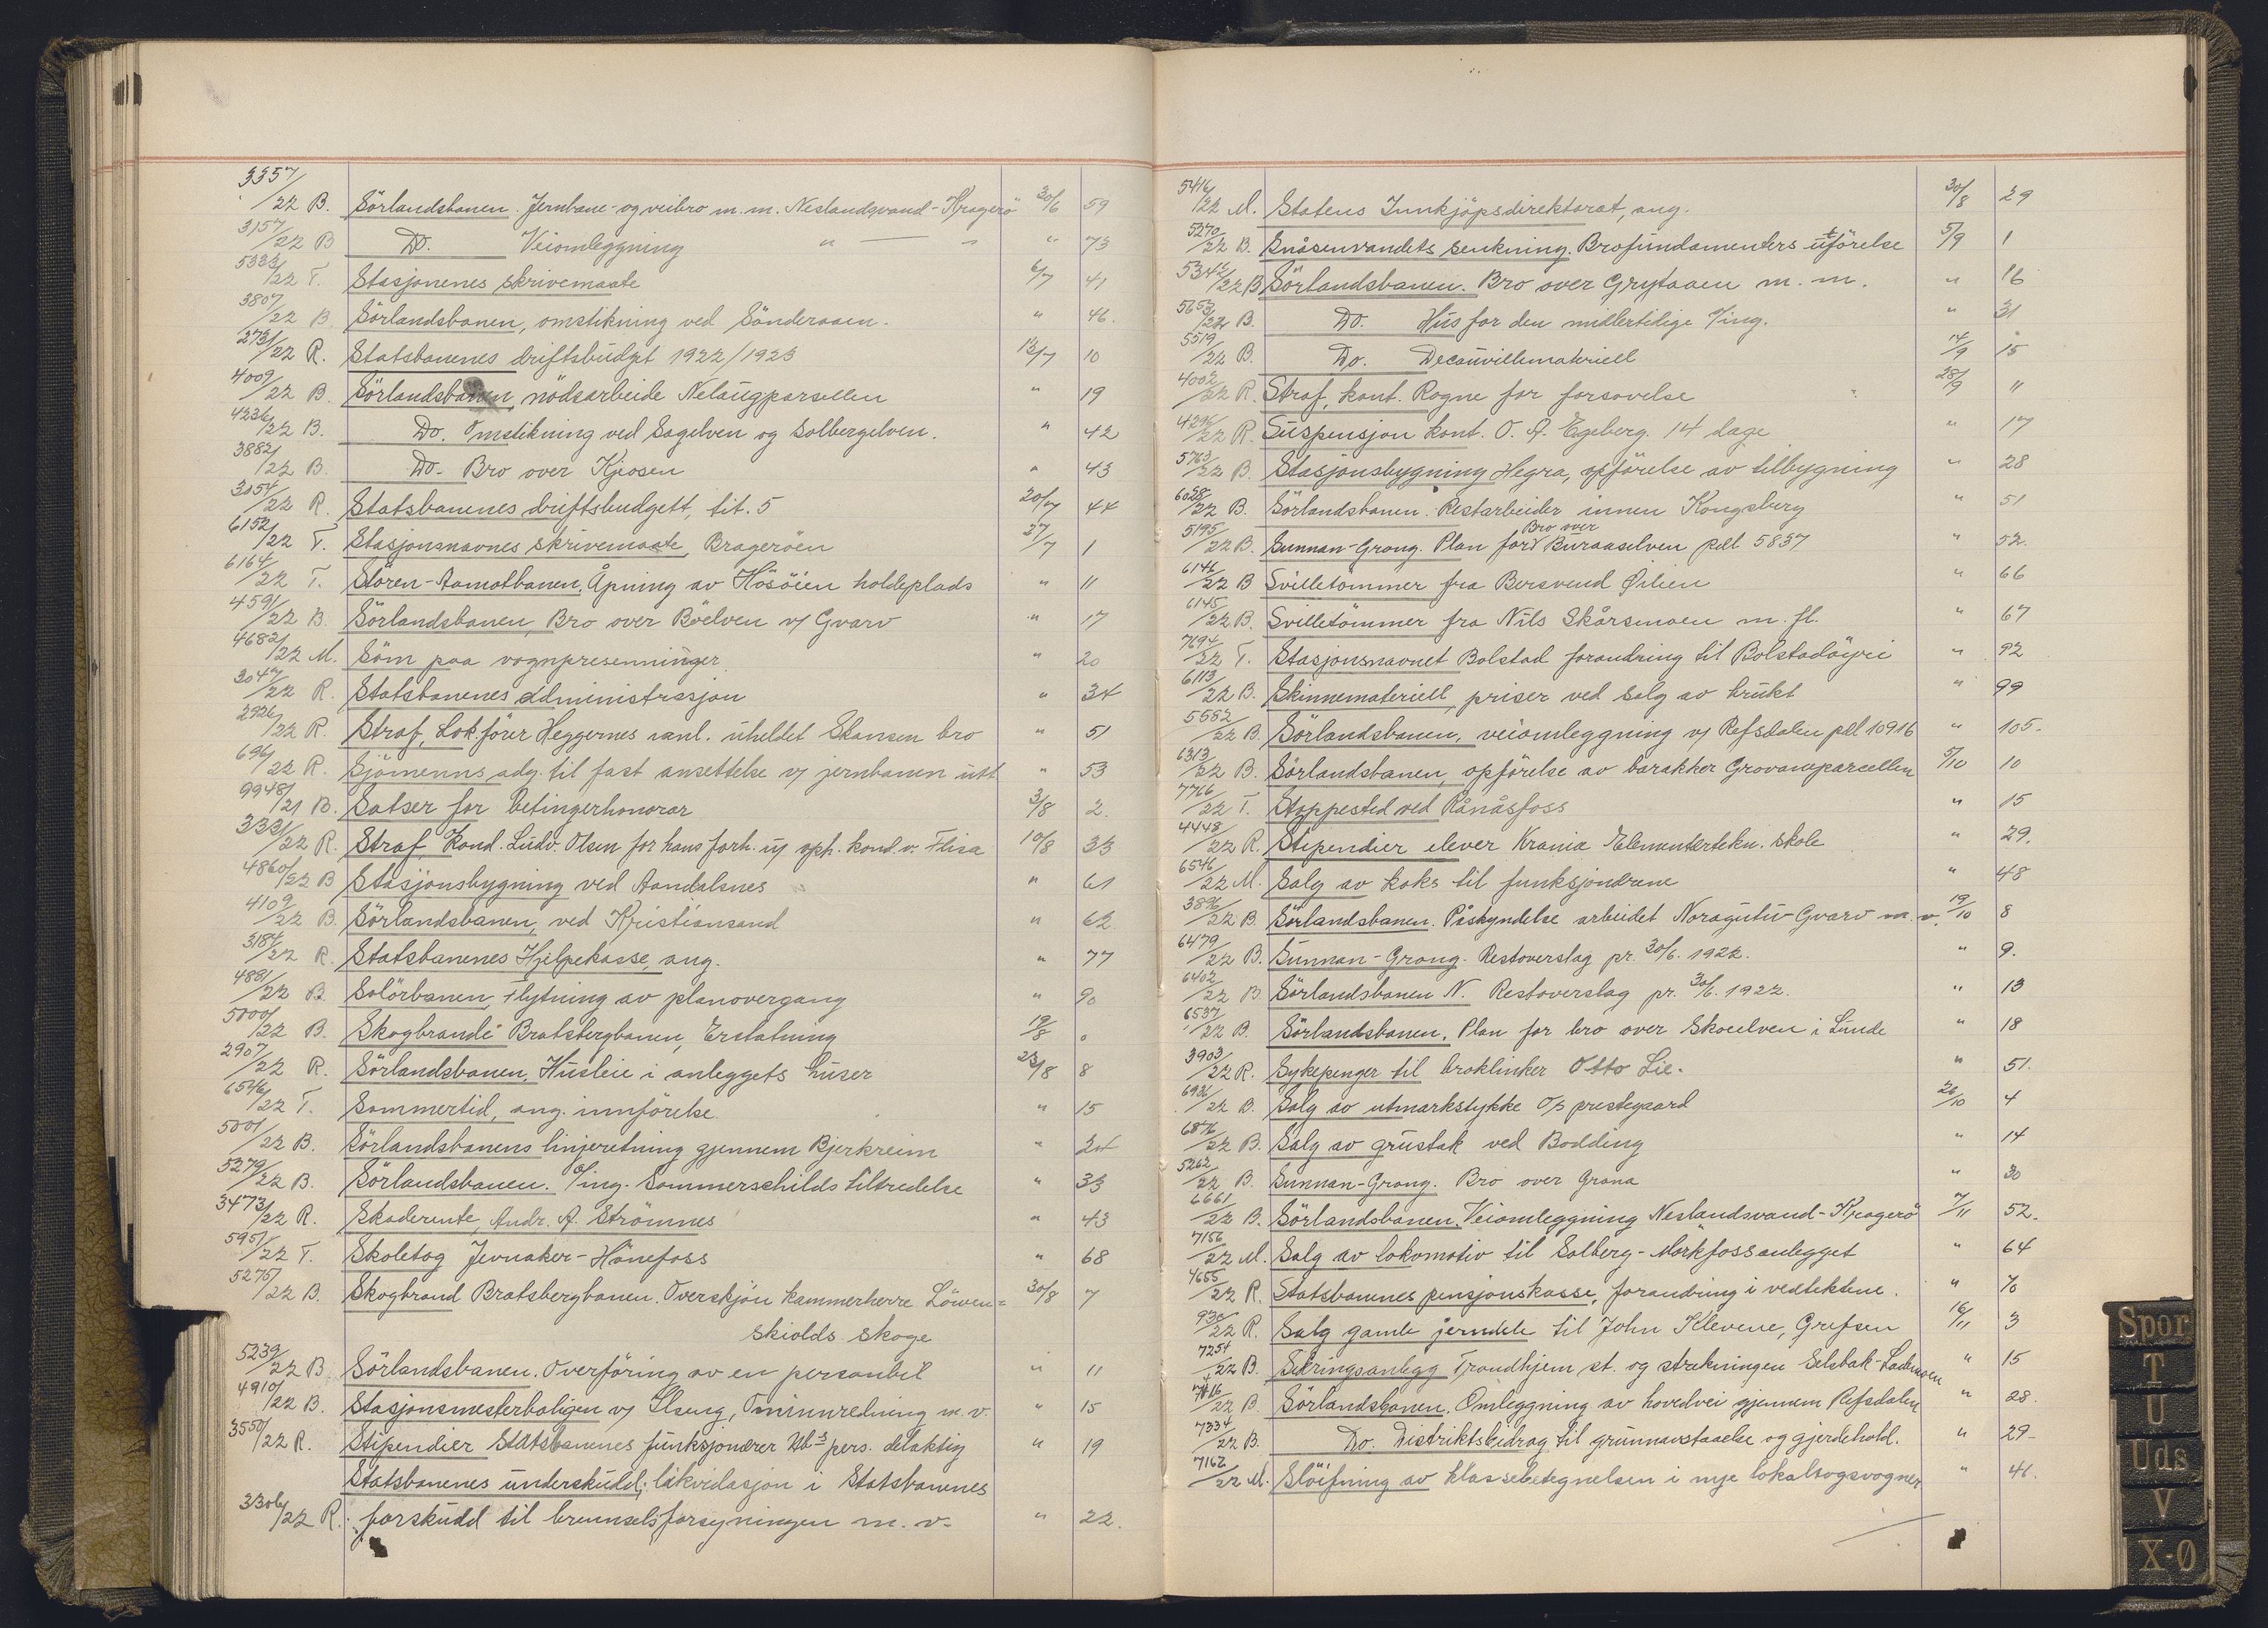 3357/22 B. Sörlandsbanen. Jernbane- og veibro m.m. Neslandsvand-Kragerö 30/6 59
3157/22 B Do. Veiomleggning " — " " 73
5333/22 T. Stasjonenes skrivemaate 6/7 41
3807/22 B Sörlandsbanen, omstikning ved Sönderaaen. " 46.
2731/22 R. Statsbanenes driftsbudgt 1922/1923 13/7 10
4009/22 B. Sörlandsbanen, nödsarbeide Nelaugparsellen " 19
4236/22 B. Do. Omstikning ved Sagelven og Solbergelven. " 42
3882/22 B. Do. Bro over Kjosen " 43
3054/22 R. Statsbanenes driftsbudgett, tit. 5 20/7 44
6152/22 T. Stasjonsnavnes skrivemaate, Brageröen 27/7 1
6164/22 T. Stören-Aamotbanen. Åpning av Hösöien holdeplads " 11
4591/22 B. Sörlandsbanen, Bro over Böelven v/ Gvarv " 17
4682/22 M. Söm paa vognpresenninger. " 20
3047/22 R. Statsbanenes administrasjon " 34
2926/22 R. Straf, Lok.förer Heggernes anl. uheldet Skansen bro " 51
696/22 R. Sjömenns adg. til fast ansettelse v/ jernbanen utt " 53
9948/21 B. Satser for betingerhonorar 3/8 2.
3331/22 R. Straf Kond. Ludv. Olsen for hans forh. v/ oph. kond. v. Flisa 10/8 33
4860/22 B Stasjonsbygning ved Aandalsnes " 61
4109/22 B. Sörlandsbanen, ved Kristiansand " 62
3184/22 R. Statsbanenes Hjelpekasse, ang. " 77
4881/22 B. Solörbanen, Flytning av planovergang " 90
5000/22 B. Skogbrande Bratsbergbanen, Erstatning 19/8 0
2907/22 R. Sörlandsbanen. Husleie i anleggets huser 23/8 8
6546/22 T. Sommertid, ang. innförelse " 15
5001/22 B. Sörlandsbanens linjeretning gjennem Bjerkreim " 24
5279/22 B. Sörlandsbanen. O/ing. Sommerschilds tiltredelse " 33
3473/22 R. Skaderente, Andr. A. Strömnes " 43
5951/22 T. Skoletog Jevnaker-Hönefoss " 68
5275/22 B. Skogbrand Bratsbergbanen. Overskjön kammerherre Löwen= 30/8 7
skiolds skoge
5239/22 B. Sörlandsbanen. Overföring av en personbil " 11
4910/22 B. Stasjonsmesterboligen v/ Ilseng, Ominnredning m.v. " 15
3550/22 R. Stipendier Statsbanenes funksjonærer Hbs pers. delaktig " 19
Statsbanenes underskudd; likvidasjon i Statsbanenes
3306/22 R. forskudd til brenselsforsyningen m.v. " 22.
5416/22 M. Statens Innkjöpsdirektorat, ang. 30/8 29
5270/22 B. Snåsenvandets senkning. Brofundamenters utförelse 5/9 1
5342/22 B Sörlandsbanen. Bro over Grytaaen m.m. " 16
5653/22 B. Do. Hus for den midlertidige o/ing. " 31
5519/22 B. Do. Decauvillemateriell 14/9 15
4002/22 R. Straf, kont. Rogne for forsovelse 28/9 11
4296/22 R. Suspensjon kont. O. A. Egeberg. 14 dage " 17
5763/22 B. Stasjonsbygning Hegra, opförelse av tilbygning " 28
6028/22 B. Sörlandsbanen. Restarbeider innen Kongsberg " 51
5195/22 B. Sunnan-Grong. Plan for Bro over Buraaselven pæl 5837 " 52.
6146/22 B Svilletömmer fra Bersvend Öilien " 66
6145/22 B. Svilletömmer fra Nils Skårsmoen m.fl. " 67
7694/22 T. Stasjonsnavnet Bolstad forandring til Bolstadöyri " 92
6113/22 B. Skinnemateriell, priser ved salg av brukt " 99
5582/22 B. Sörlandsbanen, veiomleggning v/ Refsdalen pæl 10916 " 105.
6313/22 B. Sörlandsbanen, opförelse av barakker Grovaneparcellen 5/10 10
7766/22 T. Stoppested ved Rånåsfoss " 15
4448/22 R. Stipendier elever Krania Elementærtekn. skole " 29.
6546/22 M. Salg av koks til funksjonærene " 48
3896/22 B. Sörlandsbanen. Påskyndelse arbeidet Noragutu-Gvarv m.v. 19/10 8
6479/22 B. Sunnan-Grong. Restoverslag pr. 30/6. 1922. " 9.
6402/22 B. Sörlandsbanen N. Restoverslag pr. 30/6. 1922. " 13
6537/22 B. Sörlandsbanen. Plan for bro over Skoelven i Lunde " 18
3903/22 R. Sykepenger til broklinker Otto Lie. " 51.
6931/22 B. Salg av utmarkstykke O/s prestegaard 26/10 4
6876/22 B. Salg av grustak ved Bodding " 14
5262/22 B. Sunnan-Grong. Bro over Grana " 30
6661/22 B. Sörlandsbanen. Veiomleggning Neslandsvand-Kragerö 7/11 52.
7156/22 M. Salg av lokomotiv til Solberg-Mörkfossanlegget " 64
4655/22 R. Statsbanenes pensjonskasse, forandring i vedtektene. " 76
930/22 R. Salg gamle jerndele til John Klevene, Grefsen 16/11 3
7254/22 B Sikringsanlegg Trondhjem st. og strekningen Selsbak-Lademoen " 15
7416/22 B. Sörlandsbanen. Omleggning av hovedvei gjennem Refsdalen " 28.
7334/22 B. Do. Distriktsbidrag til grunnavstaaelse og gjerdehold. " 29
7162/22 M. Slöifning av klassebetegnelsen i nye lokaltogsvogner " 46.
Spor
T
U
Uds
V
X-Ø